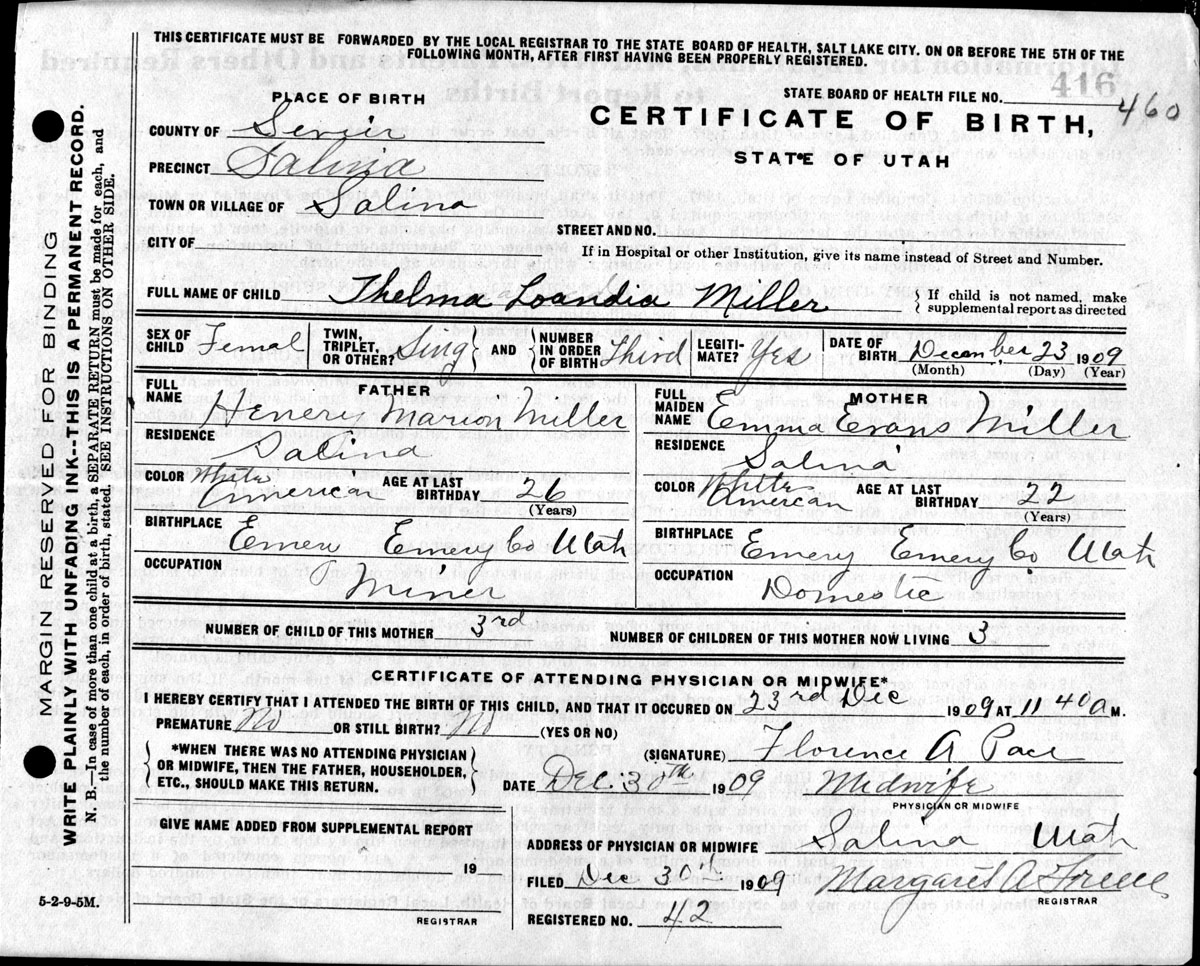 THIS CERTIFICATE MUST BE FORWARDED BY THE LOCAL REGISTRAR TO THE STATE BOARD OF HEALTH, SALT LAKE CITY. ON OR BEFORE THE 5TH OF THE
FOLLOWING MONTH, AFTER FIRST HAVING BEEN PROPERLY REGISTERED.
416
STATE BOARD OF HEALTH FILE NO. 460
PLACE OF BIRTH
CERTIFICATE OF BIRTH,
STATE OF UTAH
COUNTY OF Sevier
PRECINCT Salina
TOWN OR VILLAGE OF Salina
STREET AND NO.
CITY OF
If in Hospital or other Institution, give its name instead of Street and Number.
FULL NAME OF CHILD Thelma Loandia Miller } If child is not named, make supplemental report as directed
SEX OF CHILD Femal TWIN, TRIPLET, OR OTHER? Sing AND NUMBER IN ORDER OF BIRTH Third LEGITI-MATE? Yes DATE OF BIRTH December 23 1909
(Month) (Day) (Year)
FATHER
FULL NAME Henery Marion Miller
RESIDENCE Salina
COLOR White American AGE AT LAST BIRTHDAY 26
(Years)
BIRTHPLACE Emery Emery Co Utah
OCCUPATION Miner
MOTHER
FULL MAIDEN NAME Emma Evans Miller
RESIDENCE Salina
COLOR White American AGE AT LAST BIRTHDAY 22
(Years)
BIRTHPLACE Emery Emery Co Utah
OCCUPATION Domestic
NUMBER OF CHILD OF THIS MOTHER 3rd NUMBER OF CHILDREN OF THIS MOTHER NOW LIVING 3
CERTIFICATE OF ATTENDING PHYSICIAN OR MIDWIFE*
I HEREBY CERTIFY THAT I ATTENDED THE BIRTH OF THIS CHILD, AND THAT IT OCCURED ON 23rd Dec 1909 AT 11 40 a M.
PREMATURE No OR STILL BIRTH? No (YES OR NO)
*WHEN THERE WAS NO ATTENDING PHYSICIAN
OR MIDWIFE, THEN THE FATHER, HOUSEHOLDER,
ETC., SHOULD MAKE THIS RETURN.
(SIGNATURE) Florence A Pace
DATE Dec. 30th 1909 Midwife
PHYSICIAN OR MIDWIFE
GIVE NAME ADDED FROM SUPPLEMENTAL REPORT
19
REGISTRAR
ADDRESS OF PHYSICIAN OR MIDWIFE Salina Utah
FILED Dec 30th 1909 Margaret A
REGISTRAR
REGISTERED NO. 42
5-2-9-5M.
MARGIN RESERVED FOR BINDING
WRITE PLAINLY WITH UNFADING INK--THIS IS A PERMANENT RECORD.
N. B.—In case of more than one child at a birth, a SEPARATE RETURN must be made for each, and
the number of each, in order of birth, stated. SEE INSTRUCTIONS ON OTHER SIDE.